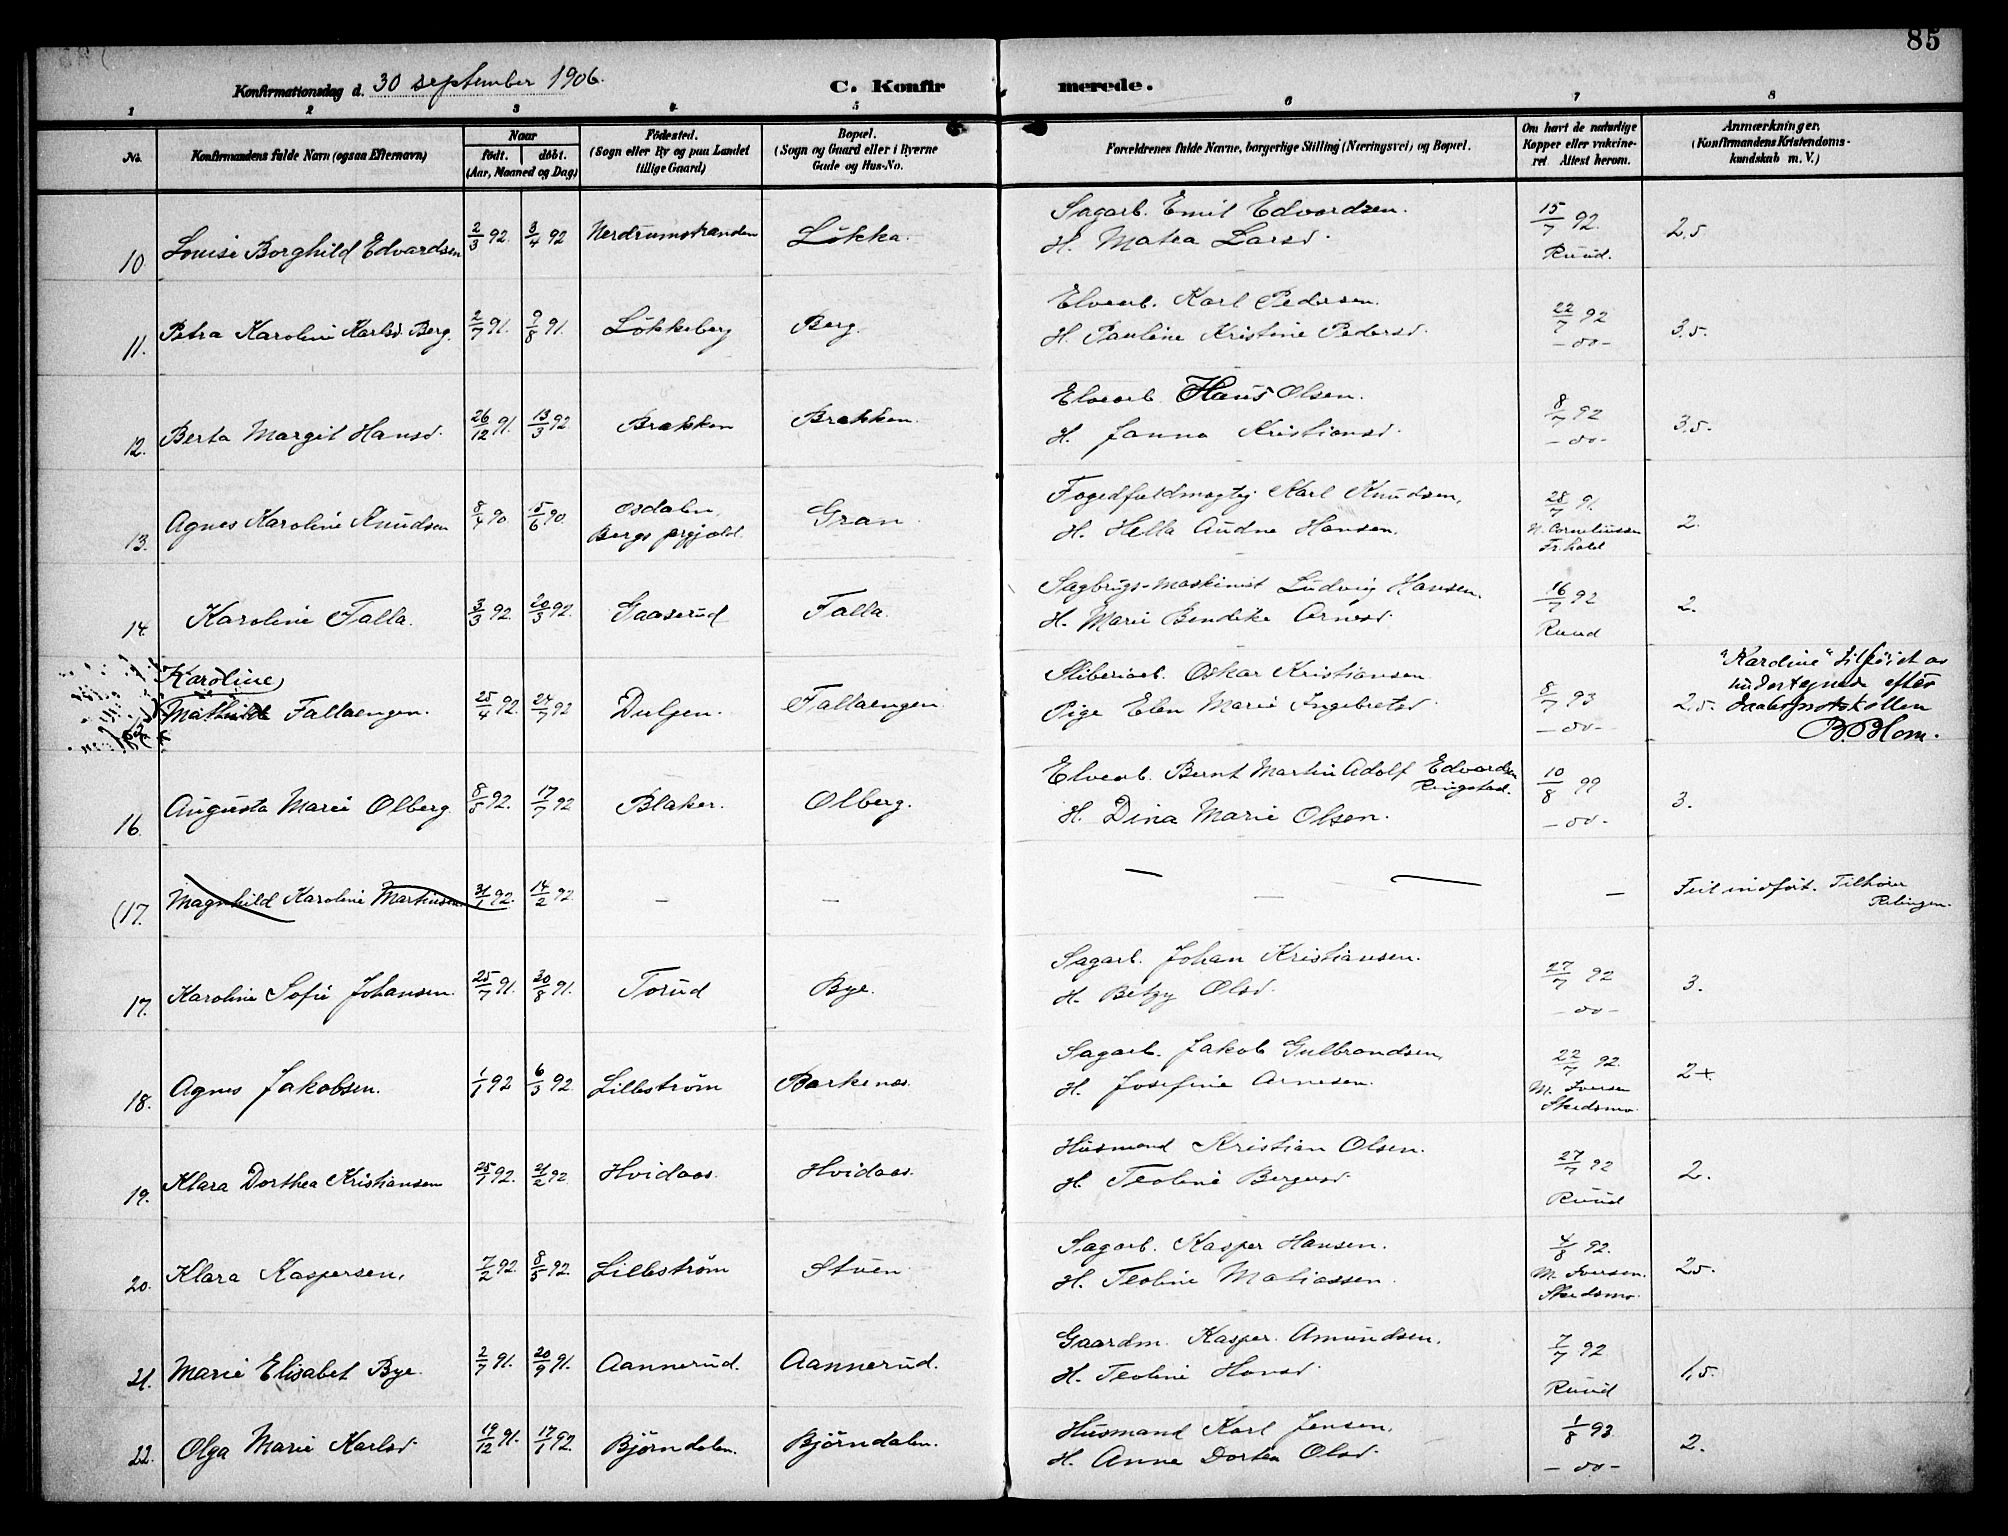 85
Konfirmationsdag d. 30 september 1906.
C. Konfirmerede.
1 2 3 4 5 6 7 8
No.
Konfirmandens fulde Navn (ogsaa Efternavn)
Naar
født. døbt.
(Aar, Maaned og Dag)
Fødested.
(Sogn eller By og paa Landet
tillige Gaard)
Bopæl.
(Sogn og Gaard eller i Byerne
Gade og Hus-No.
Forældrenes fulde Navne, borgerlige Stilling (Næringsvei) og Bopæl.
Om havt de naturlige
Kopper eller vakcine-
ret Attest herom.
Anmærkninger.
(Konfirmandens Kristendoms-
kundskab m. V.)
10. Louise Borghild Edvardsen 2/3 92. 3/4 92 Nerdrumstranden Løkka. Sagarb. Emil Edvardsen. 15/7 92. 2,5
H. Matea Larsd. Ruud.
11. Petra Karoline Karlsd. Berg. 2/7 91. 9/8 91. Løkkeberg Berg. Elvearb. Karl Pedersen. 22/7 92 3,5.
H. Pauline Kristine Pedersd. -do-
12. Berta Margit Hansd. 26/12 91. 13/3 92 Brækken Brækken. Elvearb. Hans Olsen. 8/7 92 3,5.
H. Janna Kristiansd. -do-
13. Agnes Karoline Knudsen 8/4 90 15/6 90. Osdalen, Gran. Fogedfuldmægtig Karl Knudsen, 28/7 91. 2.
Bergs prgjæld. H. Hella Audne Hansen. N. Corneliussen
Fr.hald
14. Karoline Falla. 3/3 92. 20/3 92. Gaaserud Falla. Sagbrugs-maskinist Ludvig Hansen. 16/7 92 2.
H. Marie Bendikke Arnesd. Ruud
Karoline
Mathilde Fallaengen. 25/4 92. 24/7 92 Dulpen. Fallaengen Sliberiarb. Oskar Kristiansen. 8/7 93 2,5.
Pige Elen Marie Ingebretsd. -do-
"Karoline" tilføiet av
undertegnede efter
daabsprotokollen
B. Blom.
16. Augusta Marie Olberg 8/5 92. 17/7 92 Blaker. Olberg. Elvearb. Bernt Martin Adolf Edvardsen 10/8 99 3.
Ringstad.
H. Dina Marie Olsen. -do-
(17. Magnhild Karoline Martinsen. 31/1 92. 14/2 92 - - - - - Feil indført. Tilhører
Relingen.
17. Karoline Sofie Johansen. 25/7 91. 30/8 91. Torud Bye. Sagarb. Johan Kristiansen. 27/7 92 3.
H. Betzy Olsd. -do-
18. Agnes Jakobsen. 1/1 92 6/3 92 Lillestrøm Barkenæs. Sagarb. Jakob Gulbrandsen, 22/7 92. 2+.
H. Josefine Arnesen. M. Iversen
Skedsmo.
19. Klara Dorthea Kristiansen 25/1 92. 21/2 92 Hvidaas. Hvidaas. Husmand Kristian Olsen. 27/7 92 2.
H. Teoline Bergersd. Ruud
20. Klara Kaspersen, 7/2 92. 8/5 92. Lillestrøm Stuen. Sagarb. Kasper Hansen. 4/8 92. 2,5.
H. Teoline Matiassen. M. Iversen.
Skedsmo.
21. Marie Elisabet Bye. 2/7 91. 20/9 91. Aannerud. Aannerud. Gaardm. Kasper Amundsen. 7/7 92 1,5.
H. Teoline Hansd. Ruud
22. Olga Marie Karlsd. 19/12 91. 17/1 92. Bjørndalen. Bjørndalen. Husmand Karl Jensen. 1/8 93 2.
H. Anne Dortea Olsd. -do-